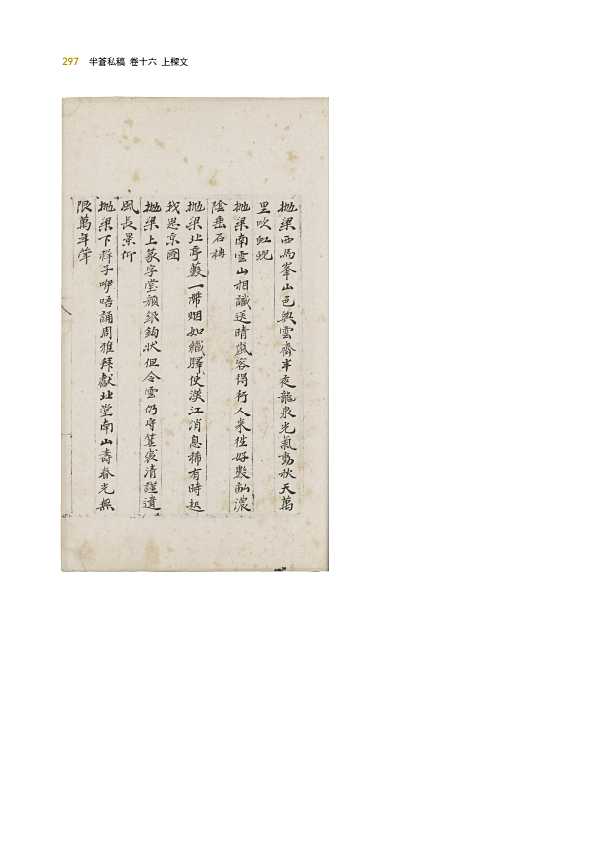 297 半蒼私稿 卷十六 上樑文
拋梁西馬峯山色與雲齊半夜龍泉光氣動秋天萬
里吹虹蜺
拋梁南雲山相識送晴嵐客得行人來徃好數畝濃
陰垂石楠
拋梁北亭蔽一帶烟如織驛使漢江消息稀有時起
我思京國
拋梁上篆字堂顔銀鉤狀但令雲仍守箕裘清謹遺
風長景仰
拋梁下群子咿唔誦周雅拜獻北堂南山壽春光無
限萬年斝